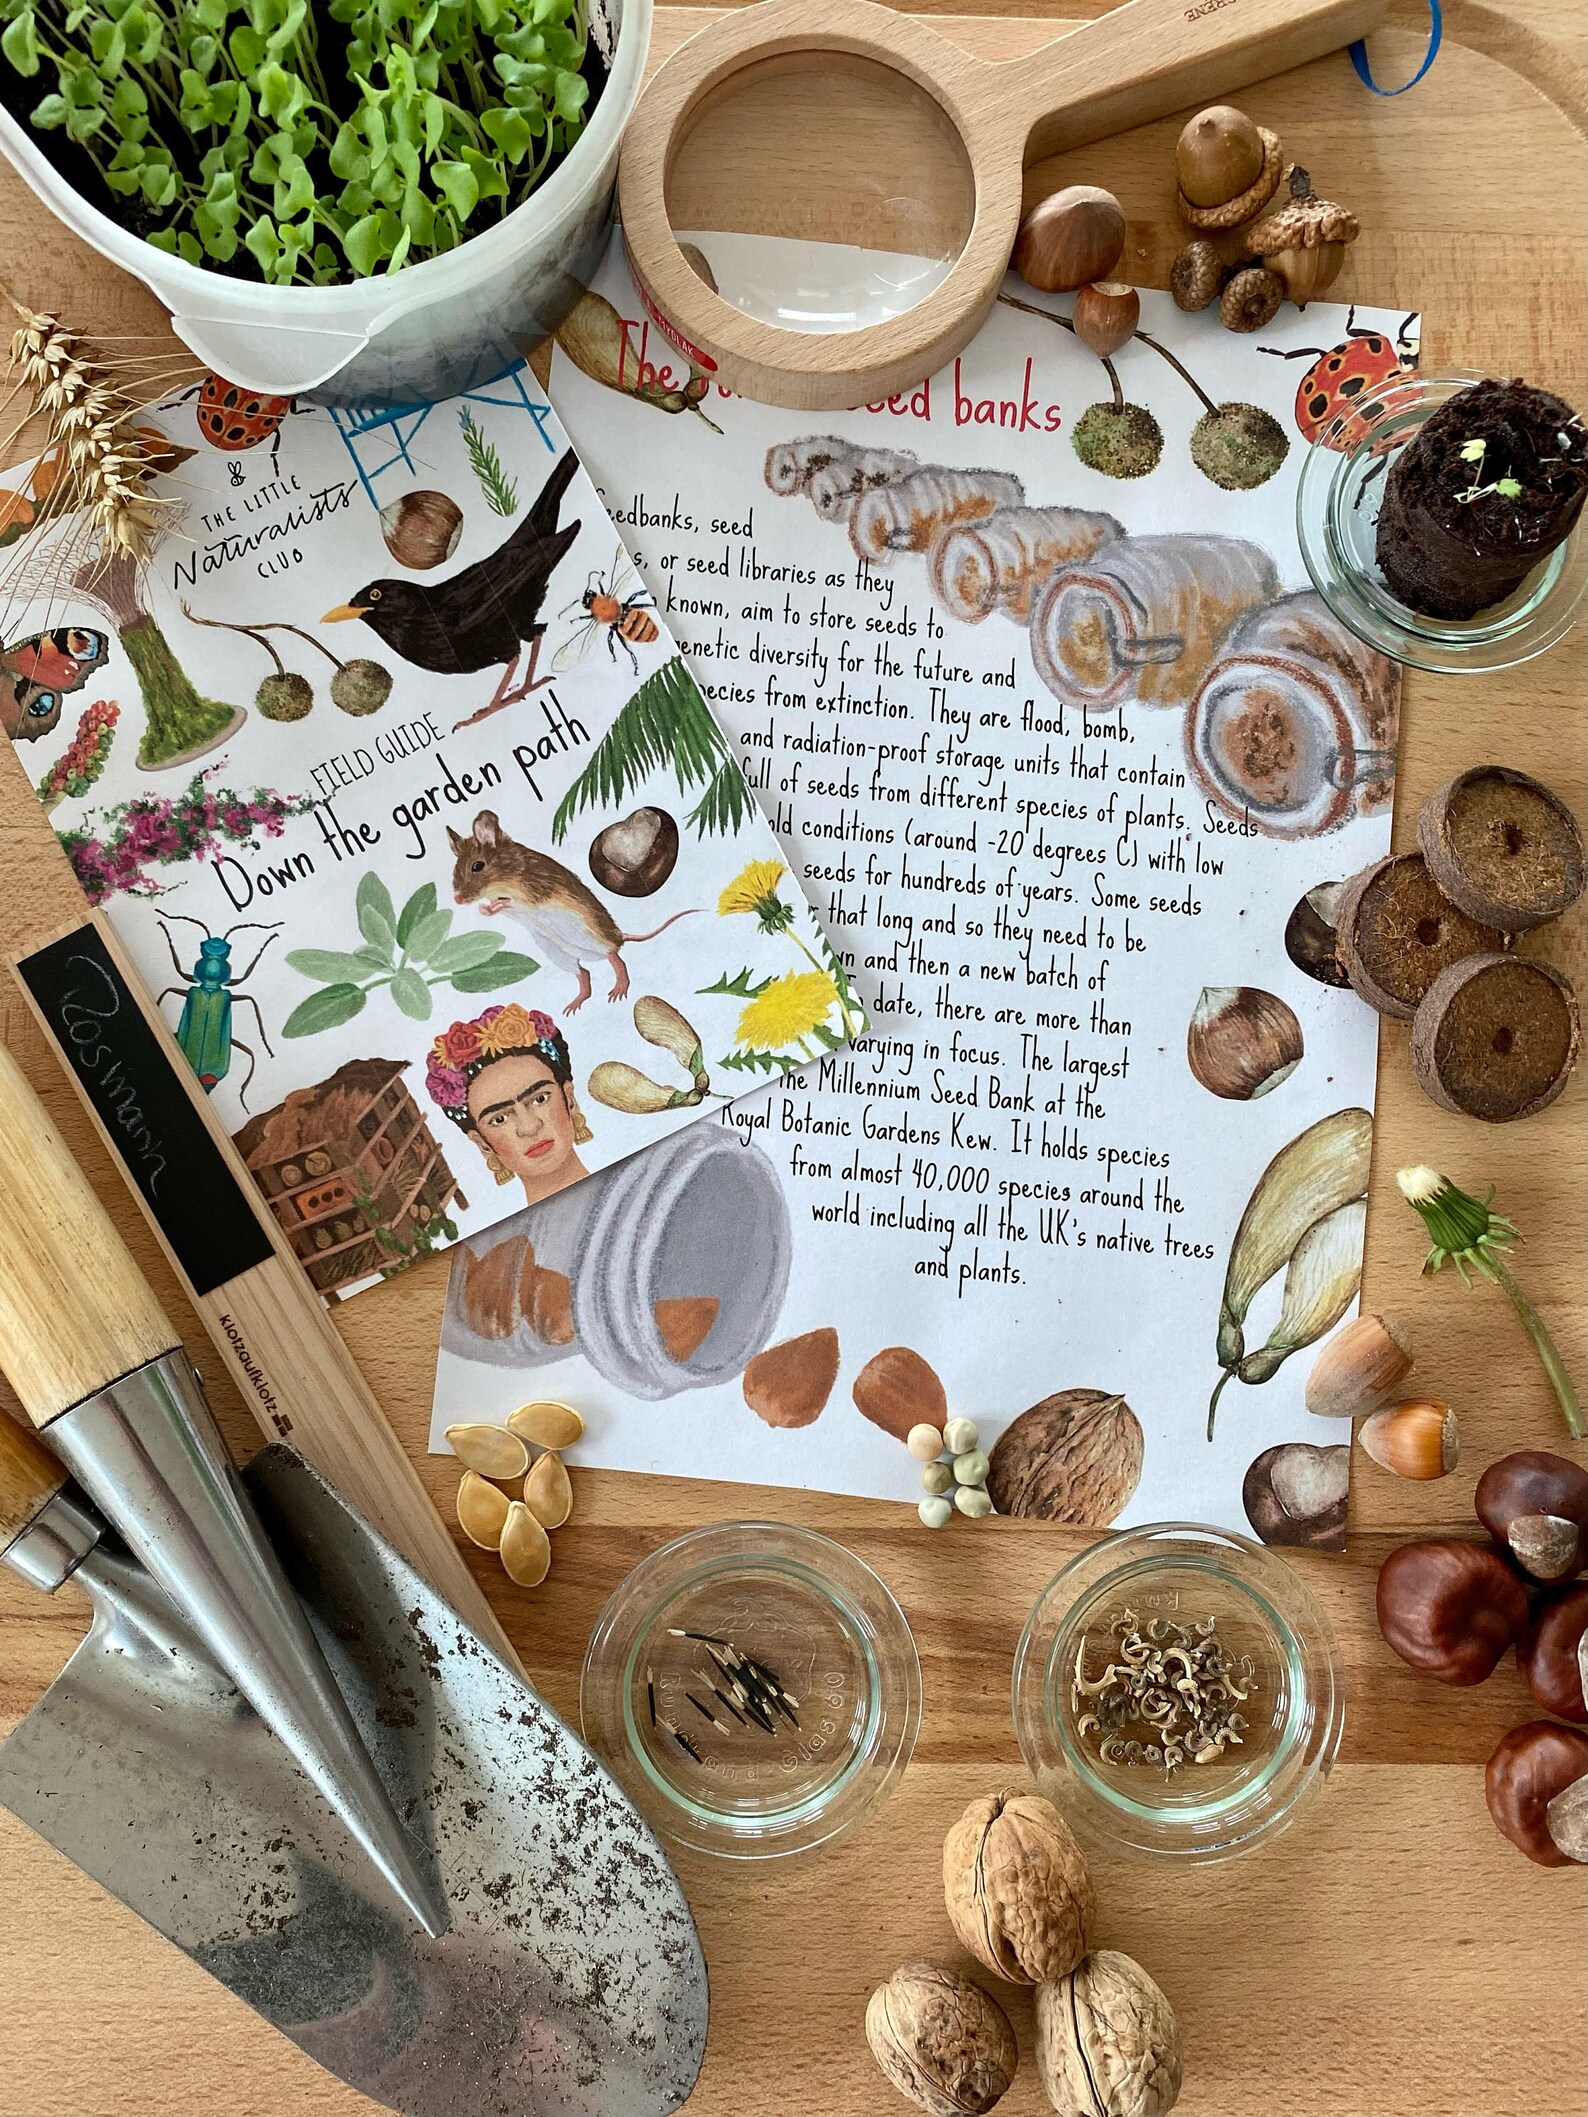 THE LITTLE
Naturalists
CLUB
FIELD GUIDE
Down the garden path
Rosmarin
klotzaufklotz
The seed banks
seed
or seed libraries as they
known, aim to store seeds to
diversity for the future and
from extinction. They are flood, bomb,
and radiation-proof storage units that contain
full of seeds from different species of plants. Seeds
conditions (around -20 degrees C) with low
seeds for hundreds of years. Some seeds
that long and so they need to be
and then a new batch of
date, there are more than
varying in focus. The largest
the Millennium Seed Bank at the
Royal Botanic Gardens Kew. It holds species
from almost 40,000 species around the
world including all the UK's native trees
and plants.
Rundrand-Glas 60